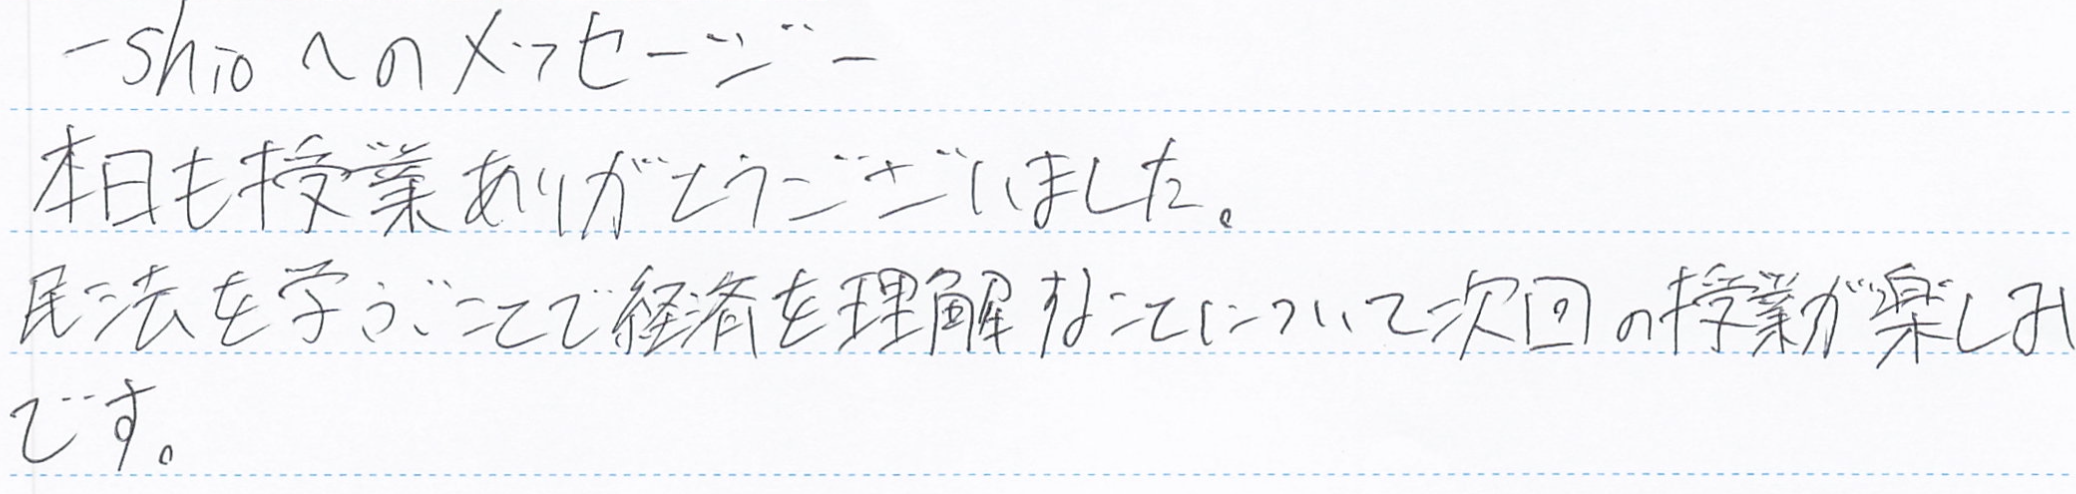 -shioへのメッセージ-
本日も授業ありがとうございました。
民法を学ぶことで経済を理解することについて次回の授業が楽しみ
です。